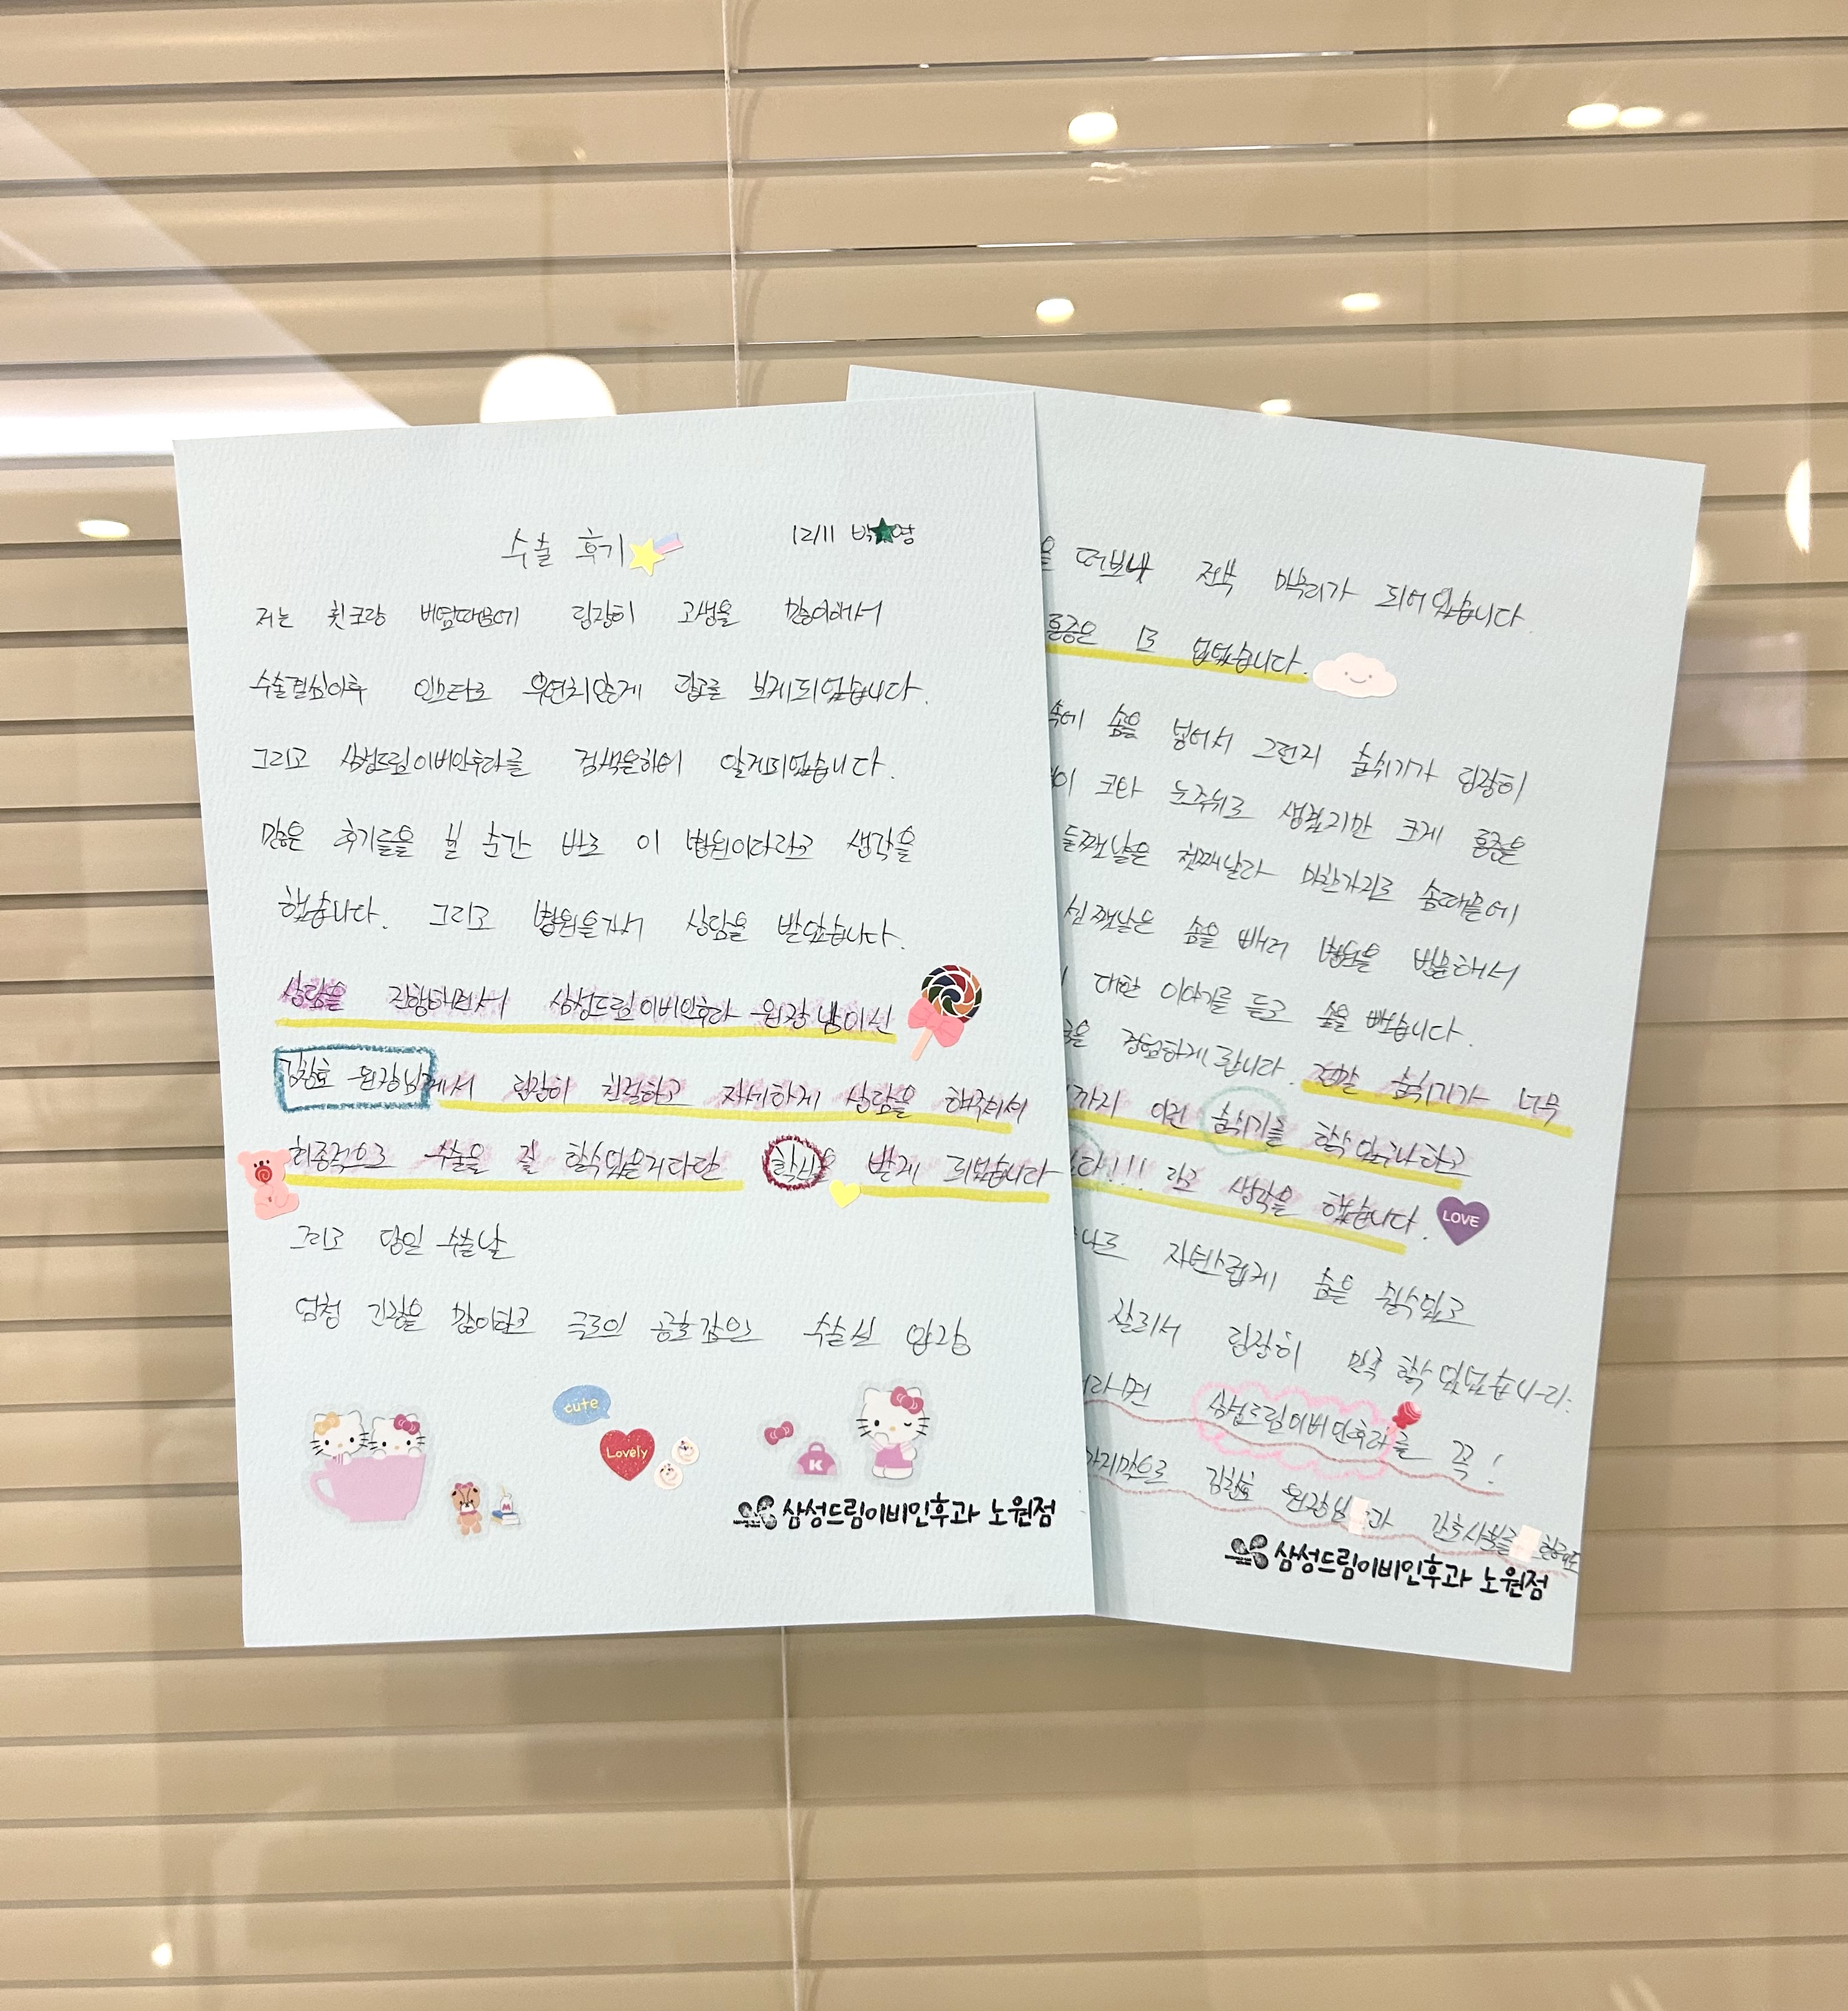 수술 후기
12/11 박 영
저는 휜코랑 비염때문에 굉장히 고생을 많이해서
수술결심이후 인스타로 우연치않게 광고를 보게되었습니다.
그리고 삼성드림이비인후과를 검색을하여 알게되었습니다.
많은 후기들을 본 순간 바로 이 병원이다라고 생각을
했습니다. 그리고 병원을가서 상담을 받았습니다.
상담을 진행하면서 삼성드림이비인후과 원장님이신
김찬효 원장님께서 굉장히 친절하고 자세하게 상담을 해주셔서
최종적으로 수술을 잘 할수있을거다란 확신을 받게 되었습니다
그리고 당일 수술날
엄청 긴장을 많이타고 극도의 공포감인 수술실 입장
cute
Lovely
K
M
삼성드림이비인후과 노원점
을 떠보니 전부 마무리가 되어있습니다
통증은 1도 없었습니다.
속에 솜을 넣어서 그런지 숨쉬기가 굉장히
이 코와 눈주위로 생겼지만 크게 통증은
둘째날은 첫째날과 마찬가지로 솜때문에
셋째날은 솜을 빼러 병원을 방문해서
대한 이야기를 듣고 솜을 뺐습니다.
을 경험하게됩니다. 정말 숨쉬기가 너무
까지 이런 숨쉬기를 할수있구나하고
다!!! 라고 생각을 했습니다.
LOVE
자연스럽게 숨을 쉴수있고
잘되서 굉장히 만족 할수있었습니다.
라면 삼성드림이비인후과를 꼭!
마지막으로 김찬효 원장님 과 간호사분들
삼성드림이비인후과 노원점